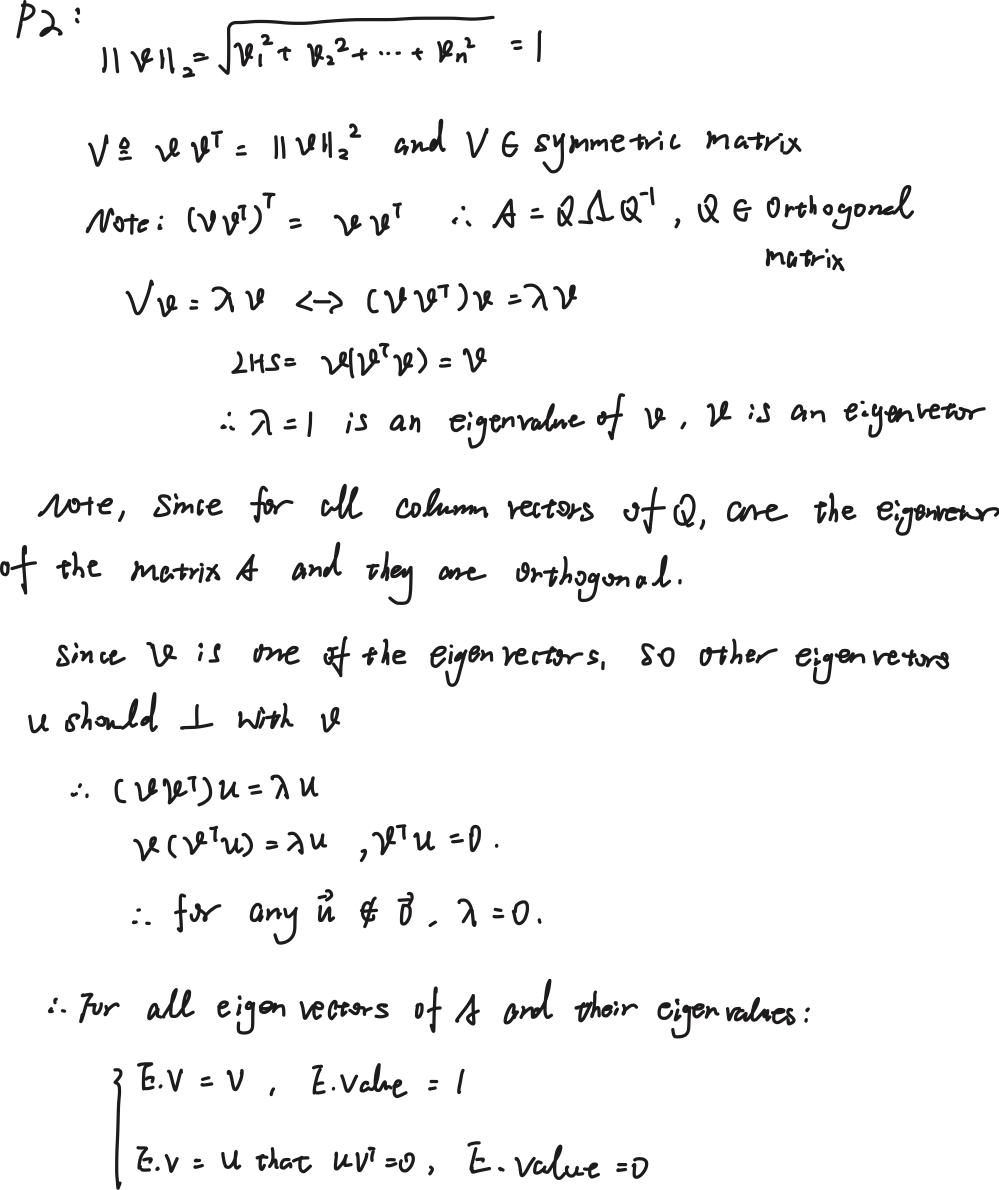 P2:
||v||₂ = √(v₁² + v₂² + ... + vₙ²) = 1
V ≜ v vᵀ = ||v||₂² and V ∈ symmetric matrix
Note: (v vᵀ)ᵀ = v vᵀ ∴ A = QΛQ⁻¹, Q ∈ Orthogonal
matrix
Vv = λv <-> (v vᵀ)v = λv
LHS = v(vᵀv) = v
∴ λ = 1 is an eigenvalue of v, v is an eigenvetor
Note, Since for all column vectors of Q, are the
of the matrix A and they are orthogonal.
Since v is one of the eigenvectors, so other eigenvetors
u should ⊥ with v
∴ (v vᵀ)u = λu
v(vᵀu) = λu , vᵀu = 0.
∴ for any u⃗ ∉ 0⃗, λ = 0.
∴ For all eigenvectors of A and their eigenvalues:
{ E.V = v , E.value = 1
E.v = u that uvᵀ = 0, E.value = 0